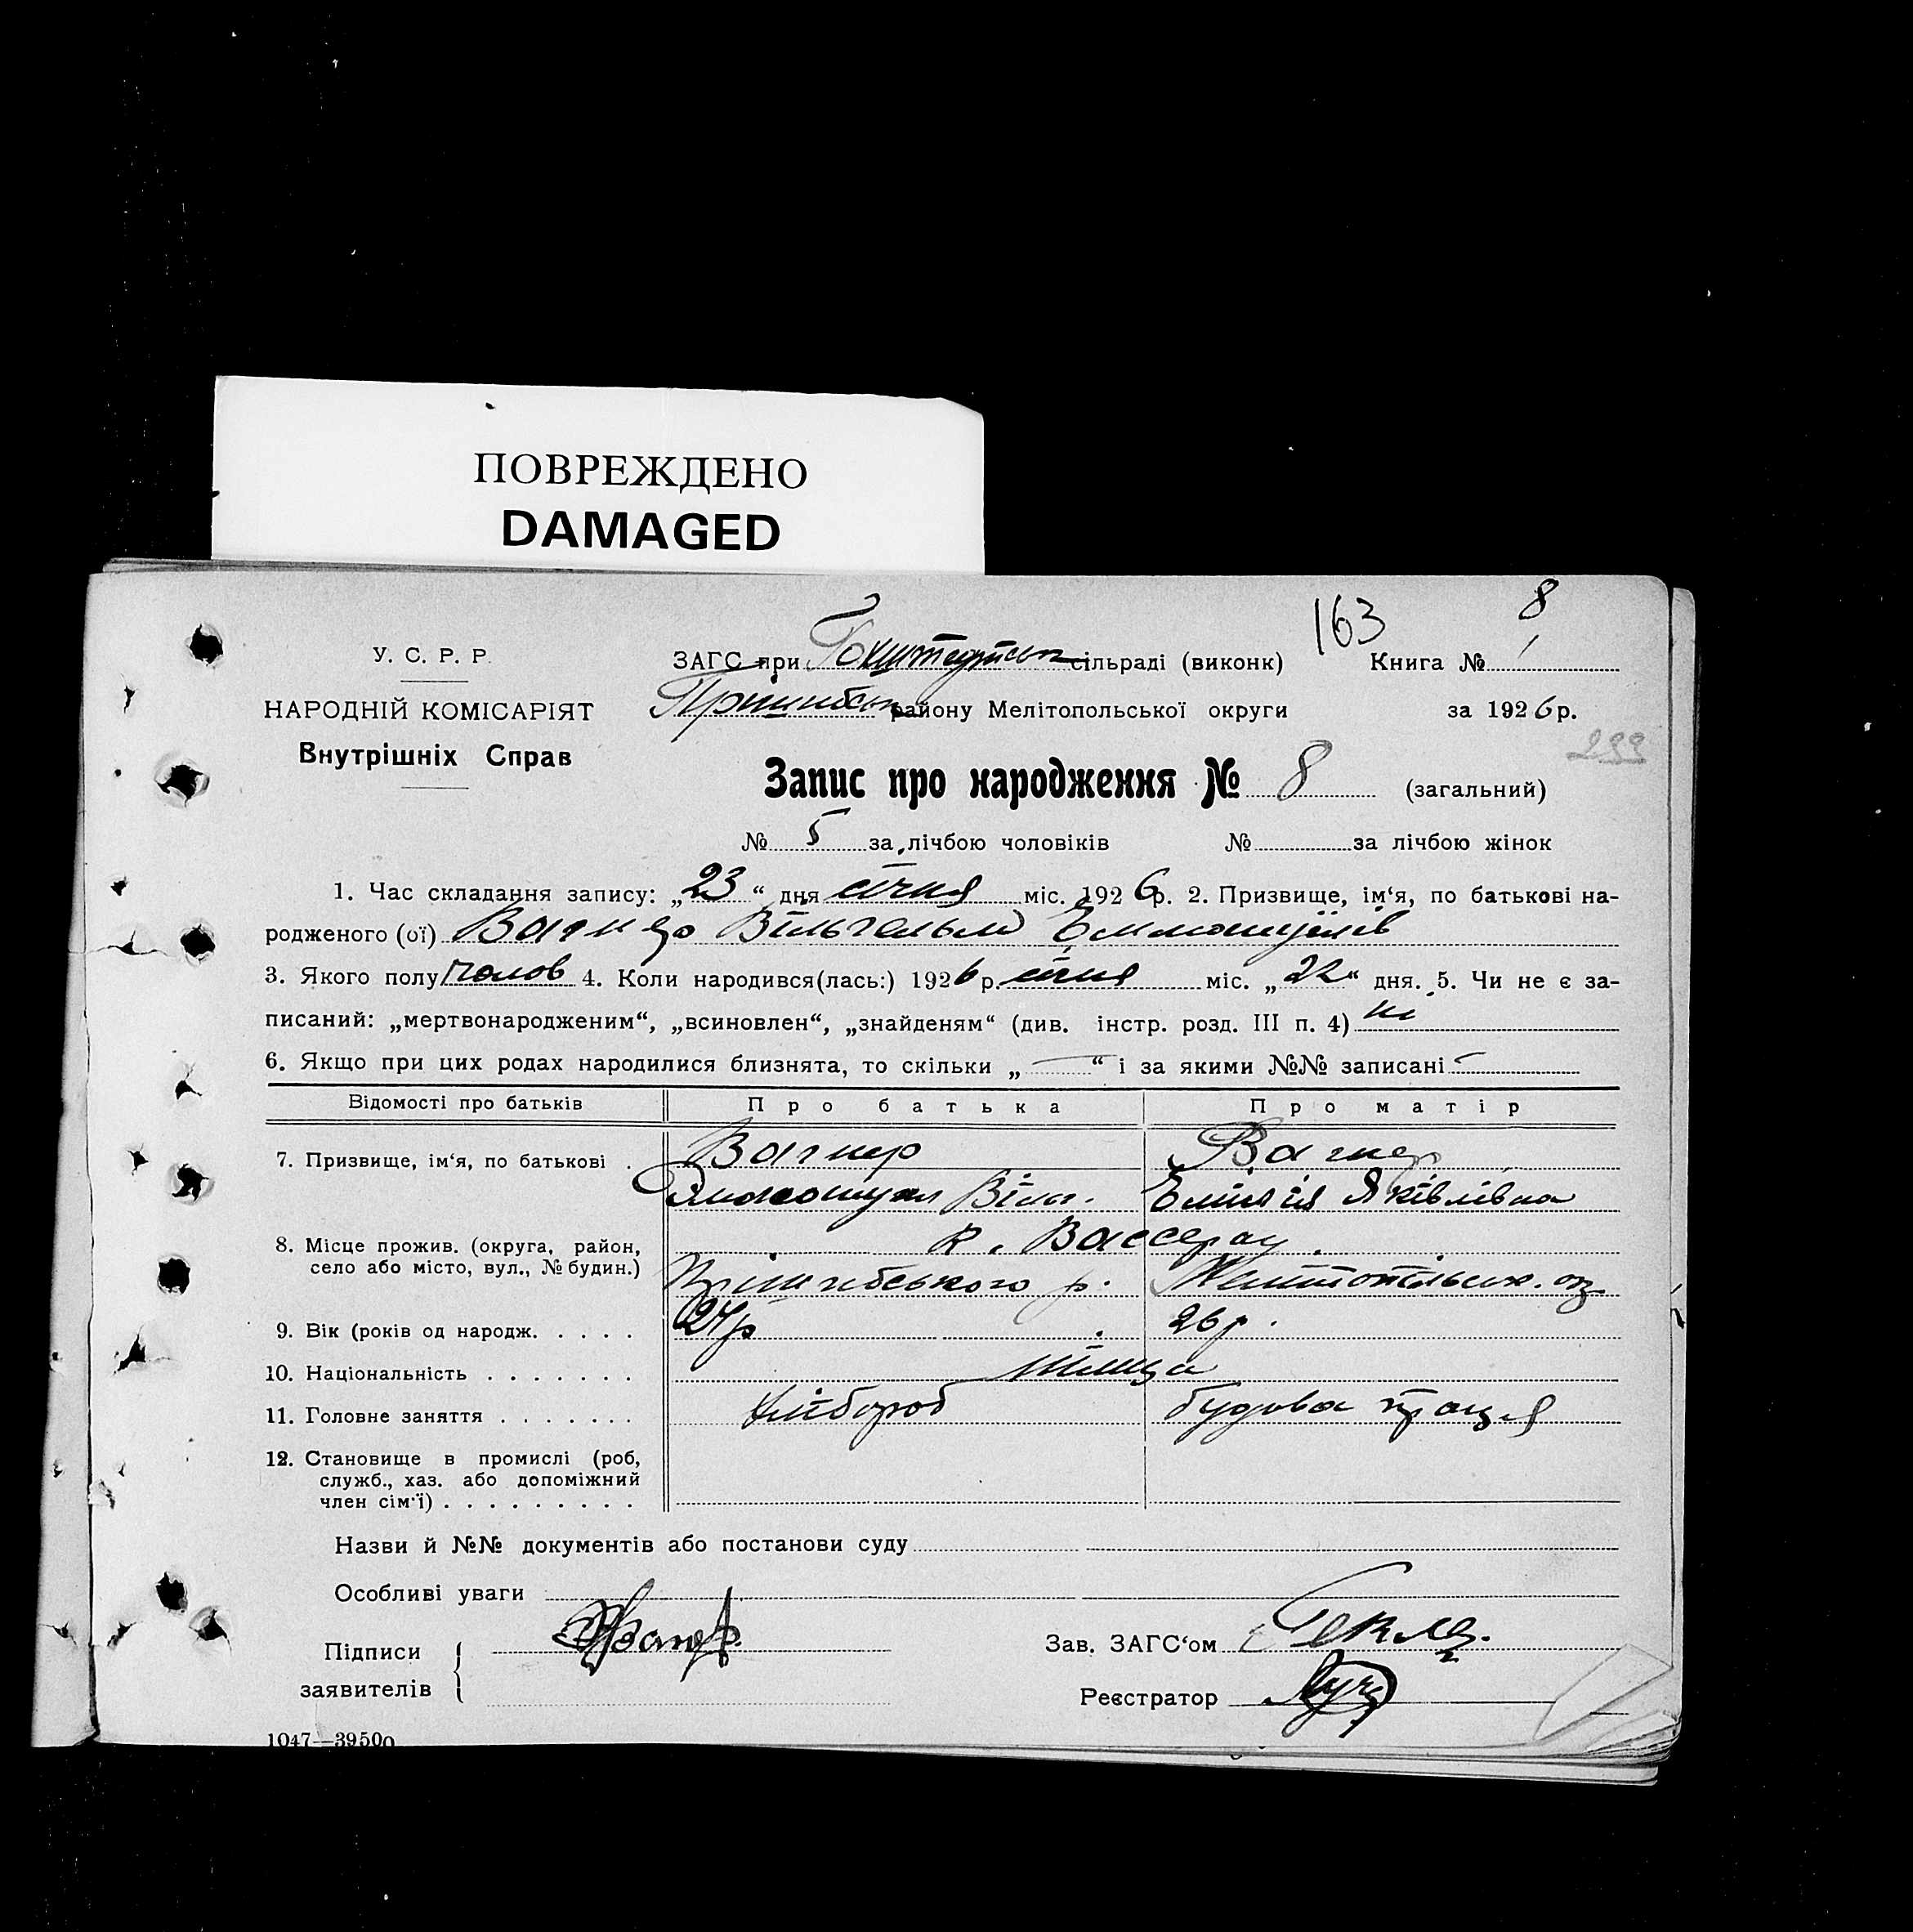 ПОВРЕЖДЕНО
DAMAGED
163
8
У. С. Р. Р.
ЗАГС при сільраді (виконк) Книга № 1
НАРОДНІЙ КОМІСАРІЯТ
району Мелітопольської округи за 1926 р.
Внутрішніх Справ
299
Запис про народження № 8 (загальний)
№ 5 за лічбою чоловіків № за лічбою жінок
1. Час складання запису: „23“ дня січня міс. 1926 р. 2. Призвище, ім‘я, по батькові на-
родженого (ої) Вагнер Вільгельм
3. Якого полу чолов 4. Коли народився(лась:) 1926 р. січня міс. „22“ дня. 5. Чи не є за-
писаний: „мертвонародженим“, „всиновлен“, „знайденям“ (див. інстр. розд. III п. 4) ні
6. Якщо при цих родах народилися близнята, то скільки „—“ і за якими №№ записані —
Відомості про батьків Про батька Про матір
7. Призвище, ім‘я, по батькові . Вагнер Вагнер
Яківлівна
8. Місце прожив. (округа, район, к. Вассерау.
село або місто, вул., № будин.) р.
9. Вік (років од народж. . . . . 24р 26р.
10. Національність . . . . . . . німці
11. Головне заняття . . . . . . . хлібороб праця
12. Становище в промислі (роб,
служб., хаз. або допоміжний
член сім‘ї) . . . . . . . . .
Назви й №№ документів або постанови суду
Особливі уваги
Підписи
заявителів
Зав. ЗАГС‘ом
Реєстратор
1047—39500